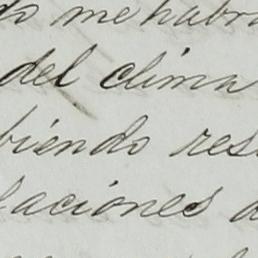 do me habra
del clima
biendo res
laciones d